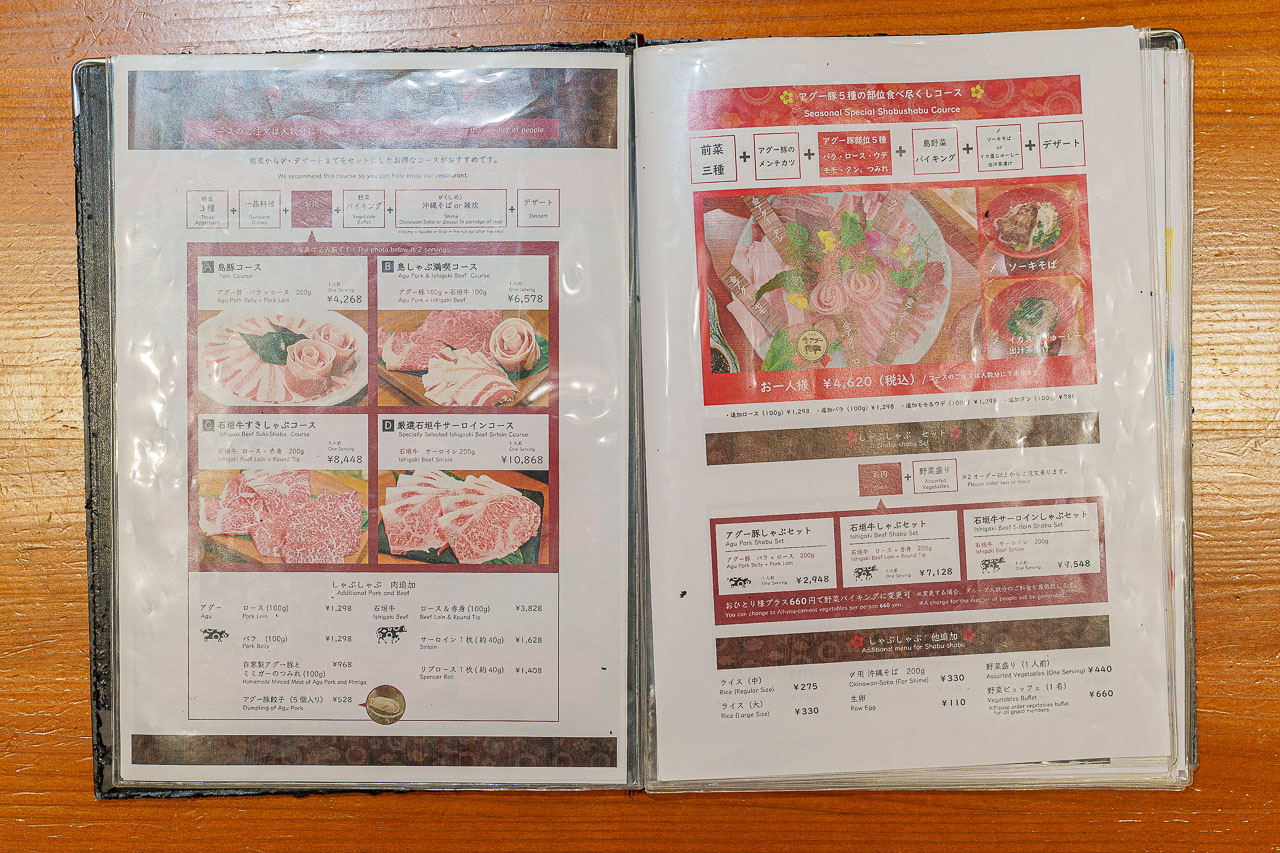 コースのご注文は人数分に
for the number of people.
前菜から〆・デザートまでをセットにしたお得なコースがおすすめです。
We recommend this course so you can fully enjoy our restaurant.
前菜
3種
Three
Appetizers
+
一品料理
Seasonal
Dishes
+
お肉
+
野菜
バイキング
Vegetable
Buffet
+
〆(しめ)
沖縄そば or 雑炊
Shime
Okinawan Soba or Zousui (a porridge of rice)
+
デザート
Dessert
※写真は2人前です / The photo below is 2 servings.
A 島豚コース
Pork Course
アグー豚 バラ+ロース 200g
Agu Pork Belly + Pork Loin
1人前
One Serving
¥4,268
B 島しゃぶ満喫コース
Agu Pork & Ishigaki Beef Course
アグー豚100g+石垣牛100g
Agu Pork + Ishigaki Beef
1人前
One Serving
¥6,578
C 石垣牛すきしゃぶコース
Ishigaki Beef Suki-Shabu Course
石垣牛 ロース+赤身 200g
Ishigaki Beef Loin + Round Tip
1人前
One Serving
¥8,448
D 厳選石垣牛サーロインコース
Specially Selected Ishigaki Beef Sirloin Course
石垣牛 サーロイン 200g
Ishigaki Beef Sirloin
1人前
One Serving
¥10,868
しゃぶしゃぶ 肉追加
Additional Pork and Beef
アグー
Agu
ロース(100g) ¥1,298
Pork Loin
バラ (100g) ¥1,298
Pork Belly
自家製アグー豚と ¥968
ミミガーのつみれ(100g)
Homemade Minced Meat of Agu Pork and Mimiga
アグー豚餃子(5個入り) ¥528
Dumpling of Agu Pork
石垣牛
Ishigaki Beef
ロース&赤身(100g) ¥3,828
Beef Loin & Round Tip
サーロイン1枚(約40g) ¥1,628
Sirloin
リブロース1枚(約40g) ¥1,408
Spencer Roll
アグー豚5種の部位食べ尽くしコース
Seasonal Special Shabushabu Cource
前菜
三種
+
アグー豚の
メンチカツ
+
アグー豚部位5種
バラ・ロース・ウデ
モモ・タン、つみれ
+
島野菜
バイキング
+
〆
ソーキそば
or
イカ墨じゅーしー
出汁茶漬け
+
デザート
ソーキそば
出汁茶漬け
お一人様 ¥4,620(税込) / コースのご注文は人数分にて承ります
・追加ロース(100g)¥1,298 ・追加バラ(100g)¥1,298 ・追加モモ&ウデ(100g)¥1,298 ・追加タン(100g)¥780
しゃぶしゃぶ セット
Shabu-shabu Set
お肉
+
野菜盛り
Assorted
Vegetables
※2オーダー以上からご注文承ります。
Please order two or more.
アグー豚しゃぶセット
Agu Pork Shabu Set
アグー豚 バラ+ロース 200g
Agu Pork Belly + Pork Loin
1人前
One Serving
¥2,948
石垣牛しゃぶセット
Ishigaki Beef Shabu Set
石垣牛 ロース+赤身 200g
Ishigaki Beef Loin + Round Tip
1人前
One Serving
¥7,128
石垣牛サーロインしゃぶセット
Ishigaki Beef Sirloin Shabu Set
石垣牛 サーロイン 200g
Ishigaki Beef Sirloin
1人前
One Serving
¥9,548
おひとり様プラス660円で野菜バイキングに変更可 ※変更する場合、グループ人数分のご料金を頂戴致します。
You can change to All-you-can-eat vegetables per person 660 yen. ※A charge for the number of people will be generated.
しゃぶしゃぶ 他追加
Additional menu for Shabu shabu
ライス(中) ¥275
Rice (Regular Size)
ライス(大) ¥330
Rice (Large Size)
〆用 沖縄そば 200g ¥330
Okinawan-Soba (For Shime)
生卵 ¥110
Raw Egg
野菜盛り(1人前) ¥440
Assorted Vegetables (One Serving)
野菜ビュッフェ(1名) ¥660
Vegetables Buffet
※Please order vegetables buffet
for all group members.